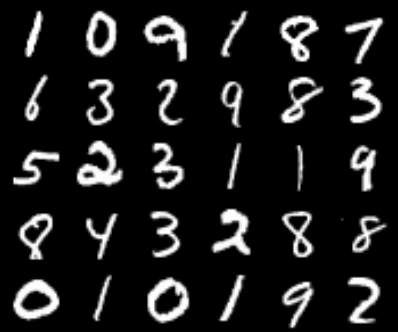 1 0 9 1 8 7
6 3 2 9 8 3
5 2 3 1 1 9
8 4 3 2 8 8
0 1 0 1 9 2